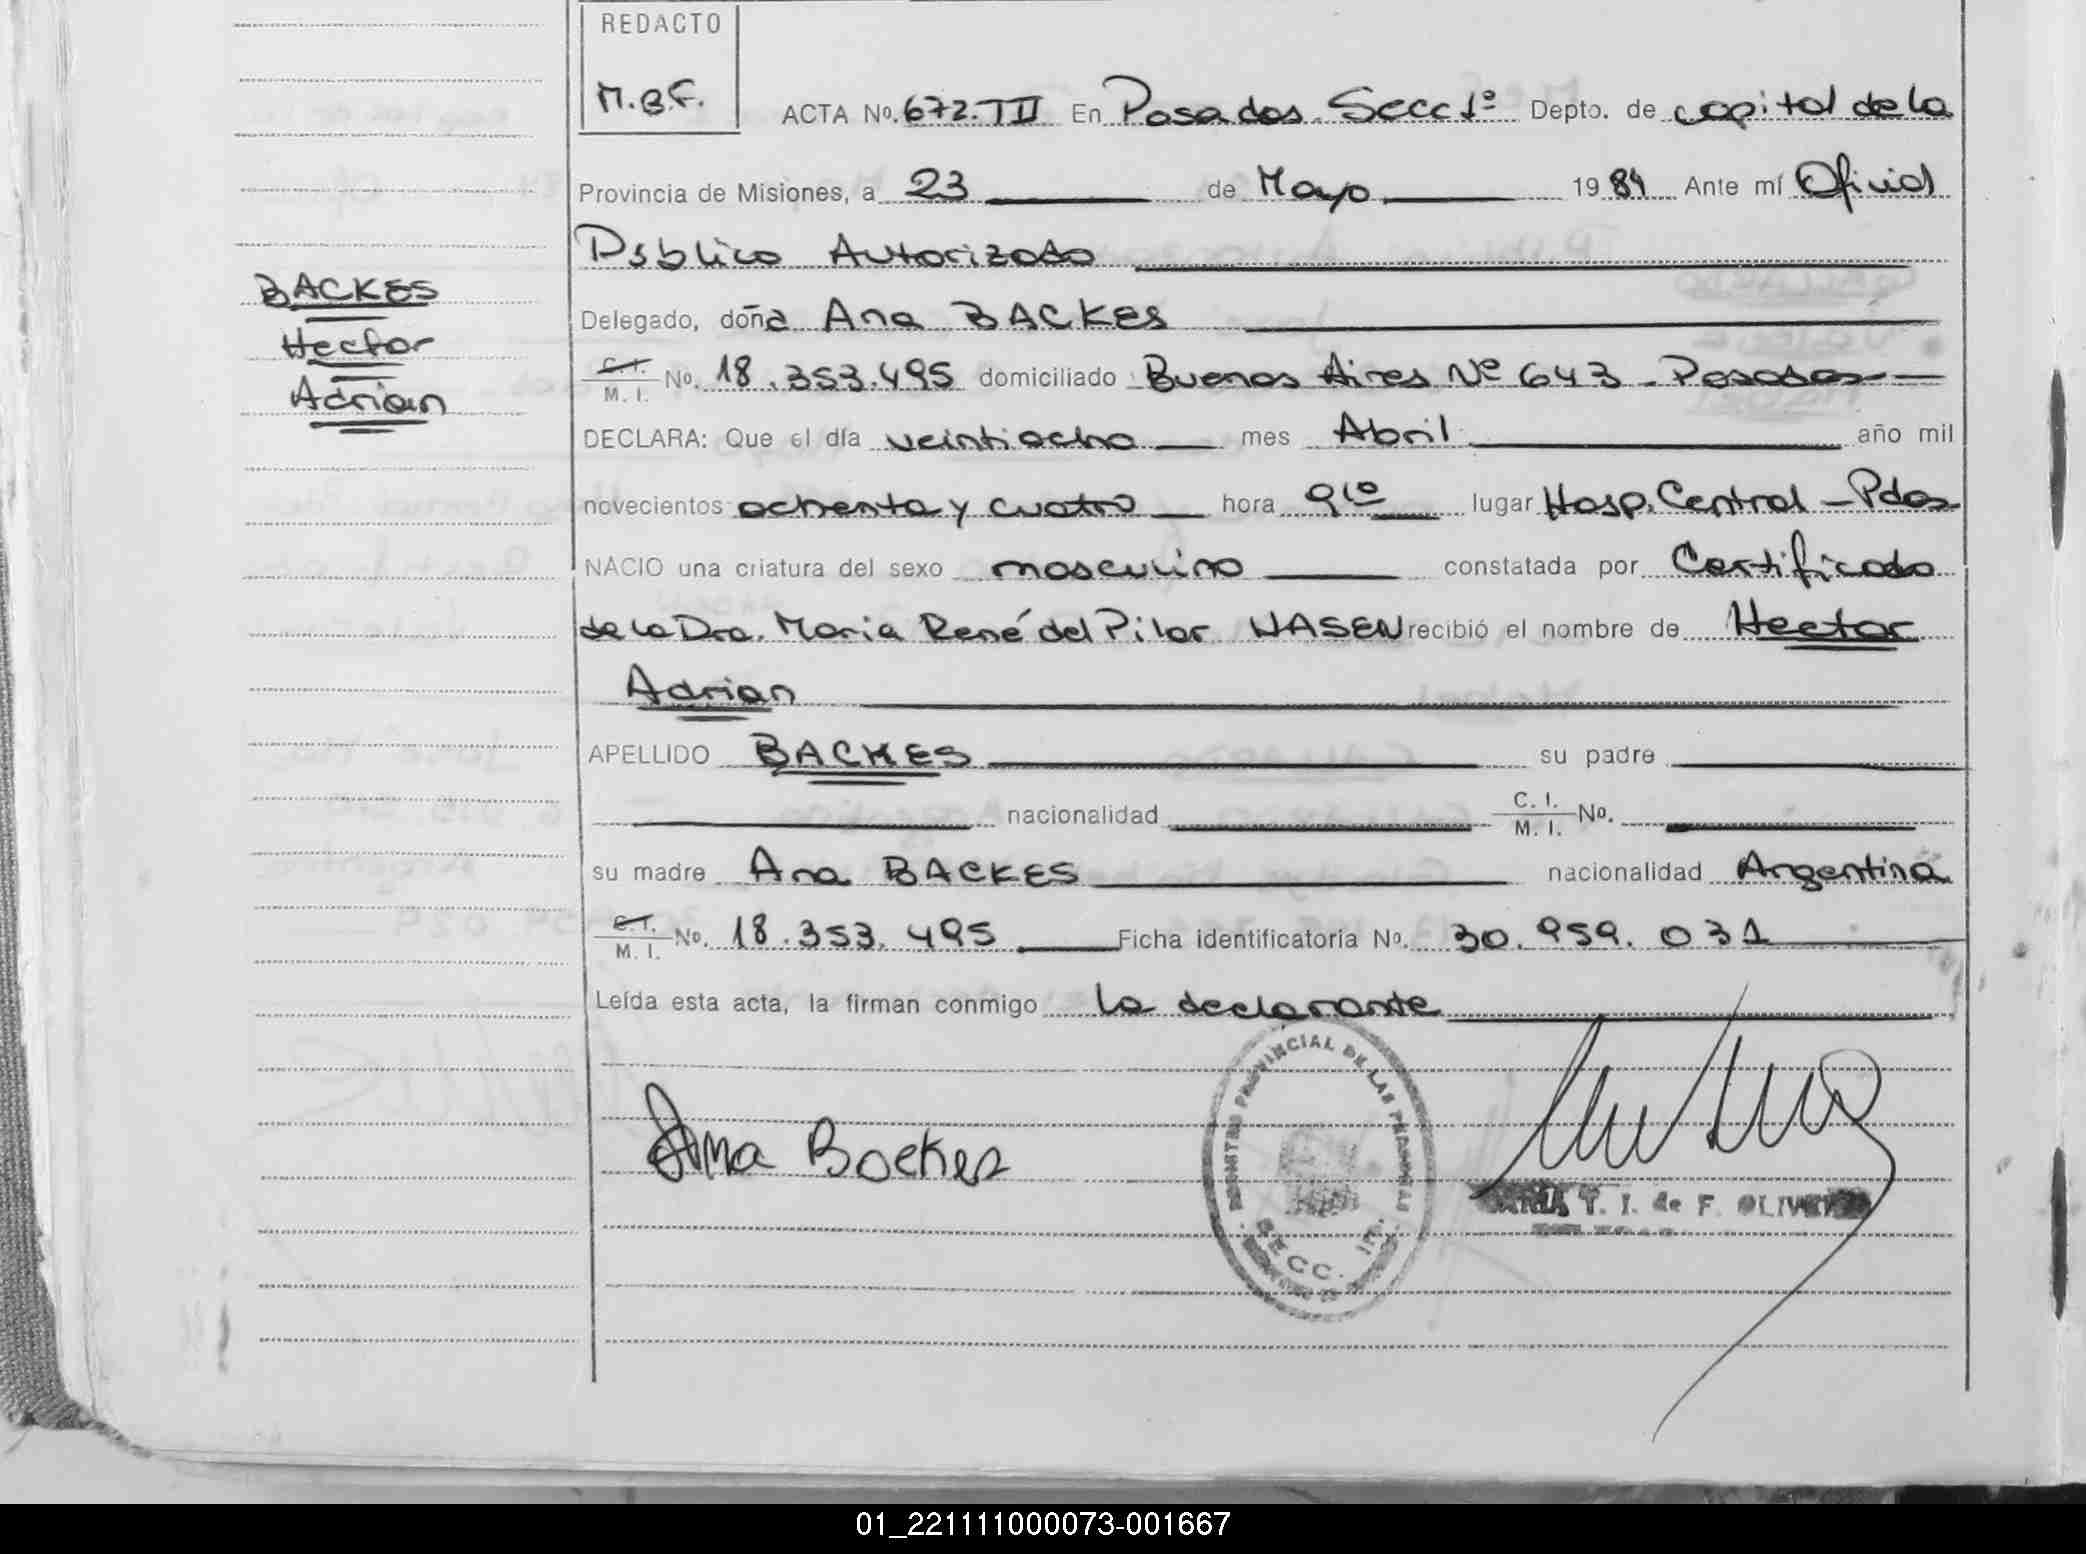 REDACTO
M.B.F.
ACTA No. 672. TIII En Posadas. Secc 1º Depto. de capital de la
Provincia de Misiones, a 23 de Mayo 1984 Ante mí Oficial
Público Autorizado
BACKES
Hector
Adrian
Delegado, doña Ana BACKES
C.I. M. I. No. 18.353.495 domiciliado Buenos Aires Nº 643 - Posadas
DECLARA: Que el día veintiocho mes Abril año mil
novecientos ochenta y cuatro hora 9,10 lugar Hosp. Central - Pdas
NACIO una criatura del sexo masculino constatada por Certificado
de la Dra. Maria René del Pilar WASEN recibió el nombre de Hector
Adrian
APELLIDO BACKES su padre
nacionalidad C. I. M. I. No.
su madre Ana BACKES nacionalidad Argentina
C.I. M. I. No. 18.353.495 Ficha identificatoria No. 30.959.031
Leída esta acta, la firman conmigo la declarante
Ana Backes
REGISTRO PROVINCIAL DE LAS PERSONAS
SECC. 1ra.
T. I. de F. OLIVEIRA
01_221111000073-001667